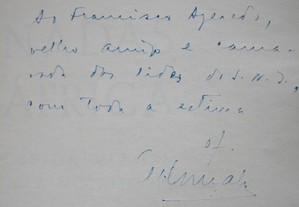 Ao Francisco Azevedo,
velho amigo e cama-
rada das lides do S. N. I.,
com toda a estima
of.